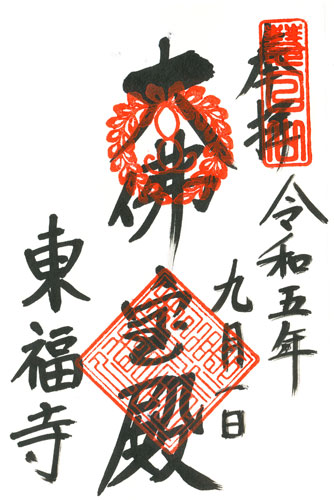 奉拝
令和五年
九月一日
大佛宝殿
東福寺